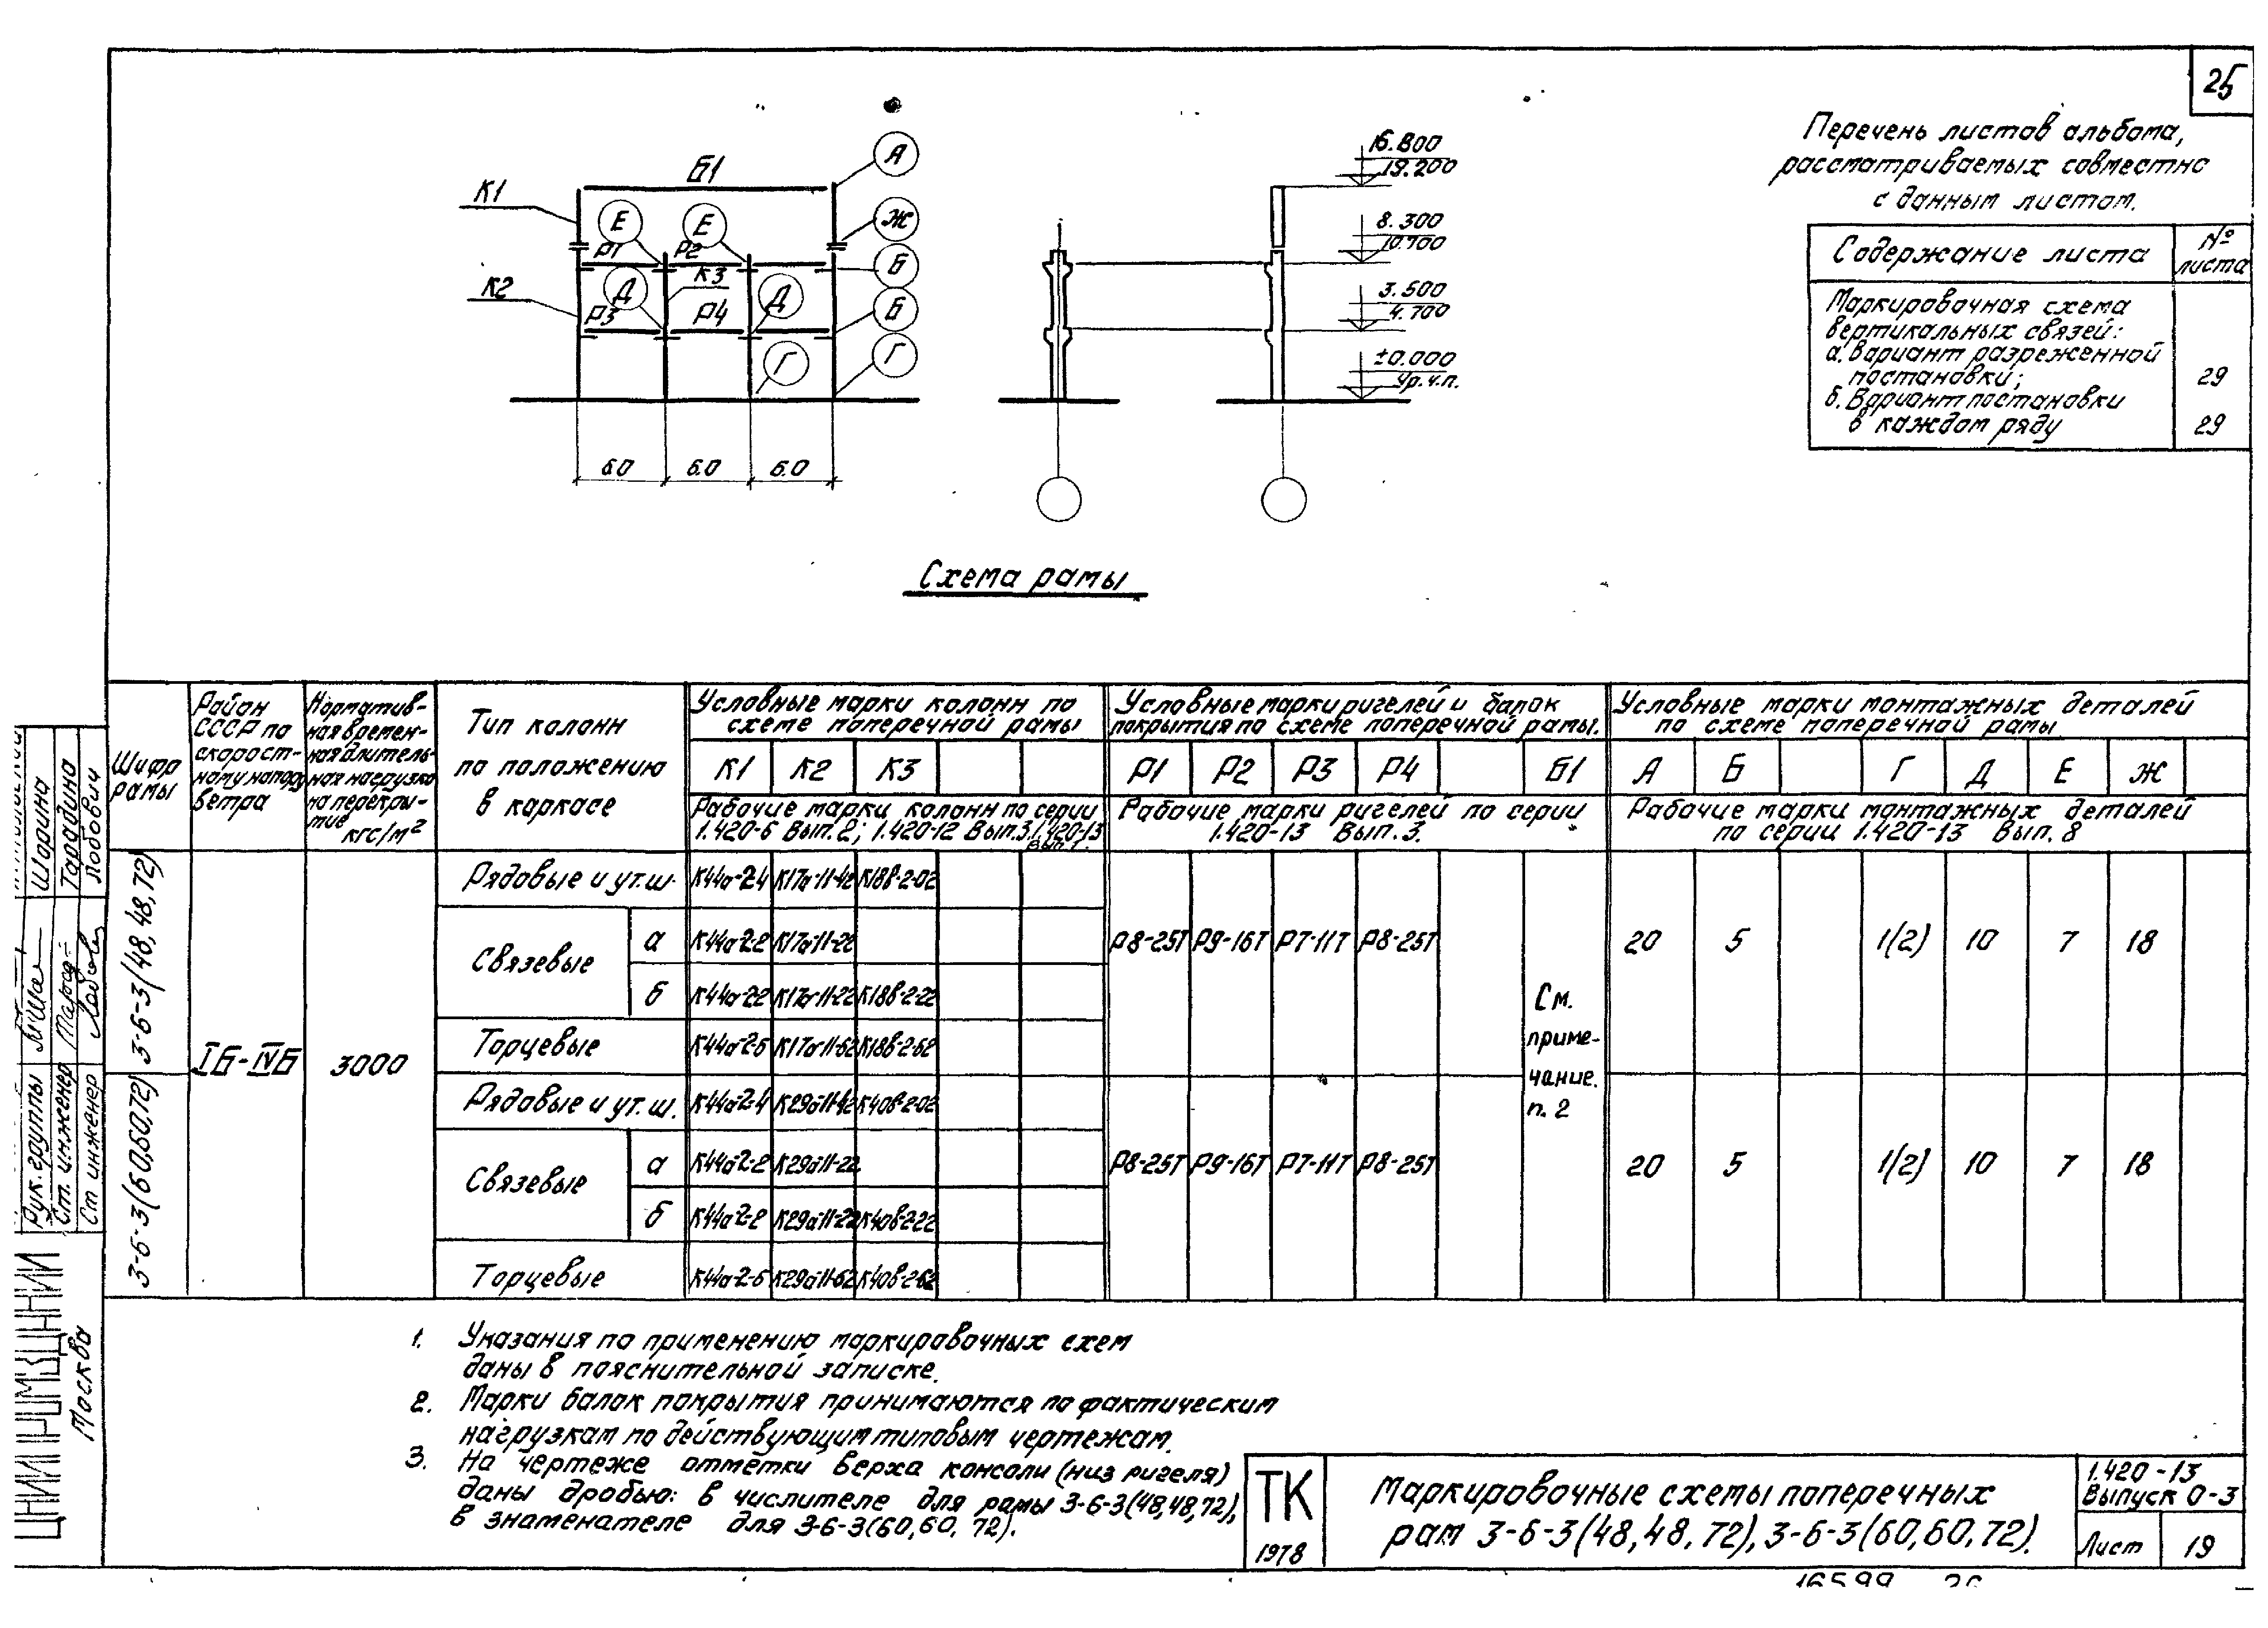 25
Перечень листов альбома,
рассматриваемых совместно
с данным листом.
Содержание листа
№
листа
Маркировочная схема
вертикальных связей:
а. Вариант разреженной
постановки;
29
б. Вариант постановки
в каждом ряду
29
К1
Б1
А
Е
Е
Ж
Р1
Р2
К3
Б
К2
Д
Д
Р3
Р4
Б
Г
Г
6.0
6.0
6.0
16.800
19.200
8.300
10.700
3.500
4.700
±0.000
Ур.ч.п.
Схема рамы
Шифр
рамы
Район
СССР по
скорост-
ному напору
ветра
Норматив-
ная времен-
ная длитель-
ная нагрузка
на перекры-
тие
кгс/м²
Тип колонн
по положению
в каркасе
Условные марки колонн по
схеме поперечной рамы
К1 К2 К3
Рабочие марки колонн по серии
1.420-6 Вып.2; 1.420-12 Вып.3, 1.420-13
Вып.1.
Условные марки ригелей и балок
покрытия по схеме поперечной рамы.
Р1 Р2 Р3 Р4 Б1
Рабочие марки ригелей по серии
1.420-13 Вып.3.
Условные марки монтажных деталей
по схеме поперечной рамы
А Б Г Д Е Ж
Рабочие марки монтажных деталей
по серии 1.420-13 Вып.8
3-6-3(48,48,72)
3-6-3(60,60,72)
IБ-IVБ
3000
Рядовые и у т.ш. К44а-2-4 К17а-11-42 К18в-2-02
Связевые
а К44а-2-2 К17а-11-22
б К44а-2-2 К17а-11-22 К18в-2-22
Торцевые К44а-2-6 К17а-11-62 К18в-2-62
Р8-25Т Р9-16Т Р7-11Т Р8-25Т
20 5 1(2) 10 7 18
См.
приме-
чание.
п. 2
Рядовые и у т.ш. К44а-2-4 К29а-11-42 К40в-2-02
Связевые
а К44а-2-2 К29а-11-22
б К44а-2-2 К29а-11-22 К40в-2-22
Торцевые К44а-2-6 К29а-11-62 К40в-2-62
Р8-25Т Р9-16Т Р7-11Т Р8-25Т
20 5 1(2) 10 7 18
1. Указания по применению маркировочных схем
даны в пояснительной записке.
2. Марки балок покрытия принимаются по фактическим
нагрузкам по действующим типовым чертежам.
3. На чертеже отметки верха консоли (низ ригеля)
даны дробью: в числителе для рамы 3-6-3(48,48,72),
в знаменателе для 3-6-3(60,60,72).
ТК
1978
Маркировочные схемы поперечных
рам 3-6-3(48,48,72), 3-6-3(60,60,72).
1.420-13
Выпуск 0-3
Лист 19
Рук. группы Шарина
Ст. инженер Тарадина
Ст инженер Лобович
ЦНИИПРОМЗДАНИЙ
Москва